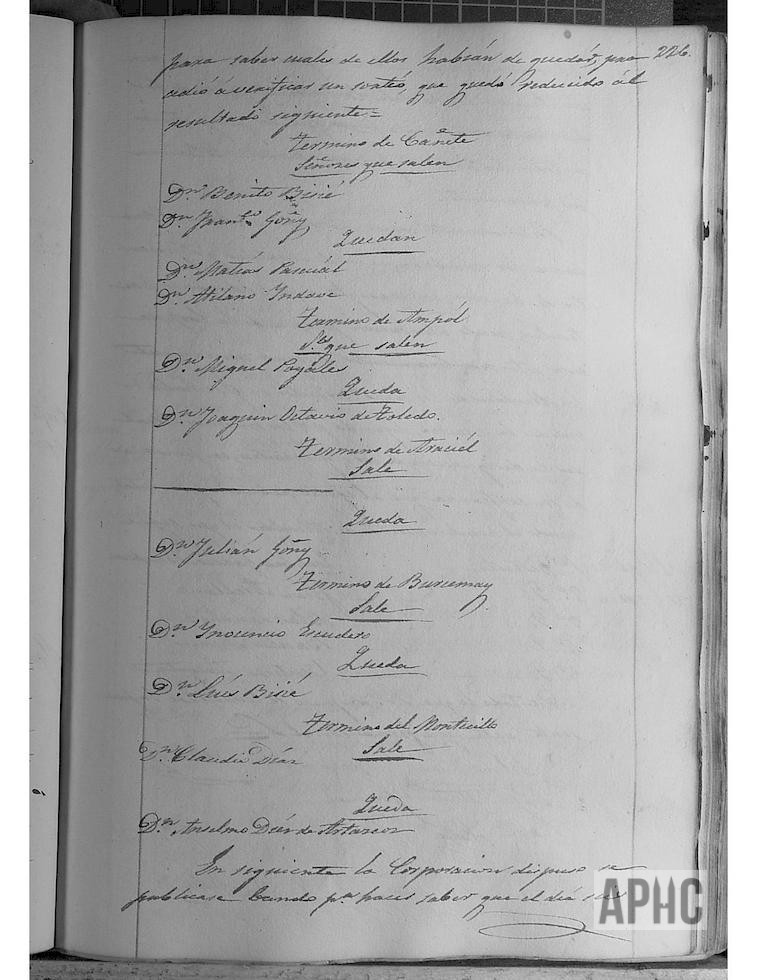 para saber cuales de ellos habrán de quedar, pro- 226.
cedió á verificar un sorteo, que quedó reducido al
resultado siguiente =
Termino de Cañete
Señores que salen
Dn. Benito Bisié
Dn. Franco. Goñy
Quedan
Dn. Matias Pascuál
Dn. Atilano Yndave
Termino de Ampól
Ses. que salen
Dn. Miguel Pogales
Queda
Dn. Joaquin Octavio de Toledo.
Termino de Araciél
Sale
Queda
Dn. Julián Goñy
Termino de Burcemay
Sale
Dn. Ynocencio Escudero
Queda
Dn. Luis Bisié
Termino del Montecillo
Sale
Dn. Claudio Díaz
Queda
Dn. Anselmo Diéz de
En siguiente la Corporacion dispuso se
publicase bando pa. hacer saber que el día
APHC